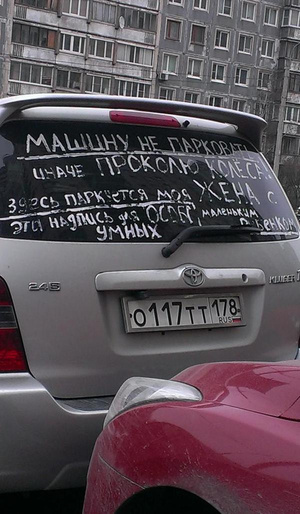 МАШИНУ НЕ ПАРКОВАТЬ
ИНАЧЕ ПРОКОЛЮ КОЛЕСА
ЗДЕСЬ ПАРКУЕТСЯ МОЯ ЖЕНА С
МАЛЕНЬКИМ
РЕБЕНКОМ
ЭТИ НАДПИСЬ ДЛЯ ОСОБО
УМНЫХ
245
KLUGER
О117ТТ 178
RUS